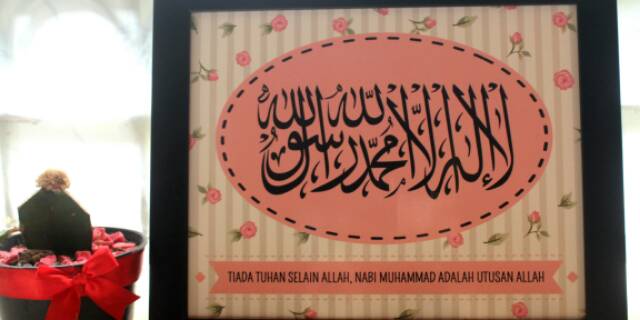 لا إله إلا الله محمد رسول الله
TIADA TUHAN SELAIN ALLAH, NABI MUHAMMAD ADALAH UTUSAN ALLAH